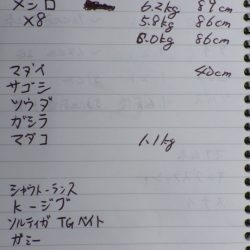 メジロ 6.2kg 89cm
×8 5.8kg 86cm
6.0kg 86cm
マダイ 40cm
サゴシ
ツウダ
ガシラ
マダコ 1.1kg
シャウトーランス
K-ジグ
ソルティガ TGベイト
ガミー